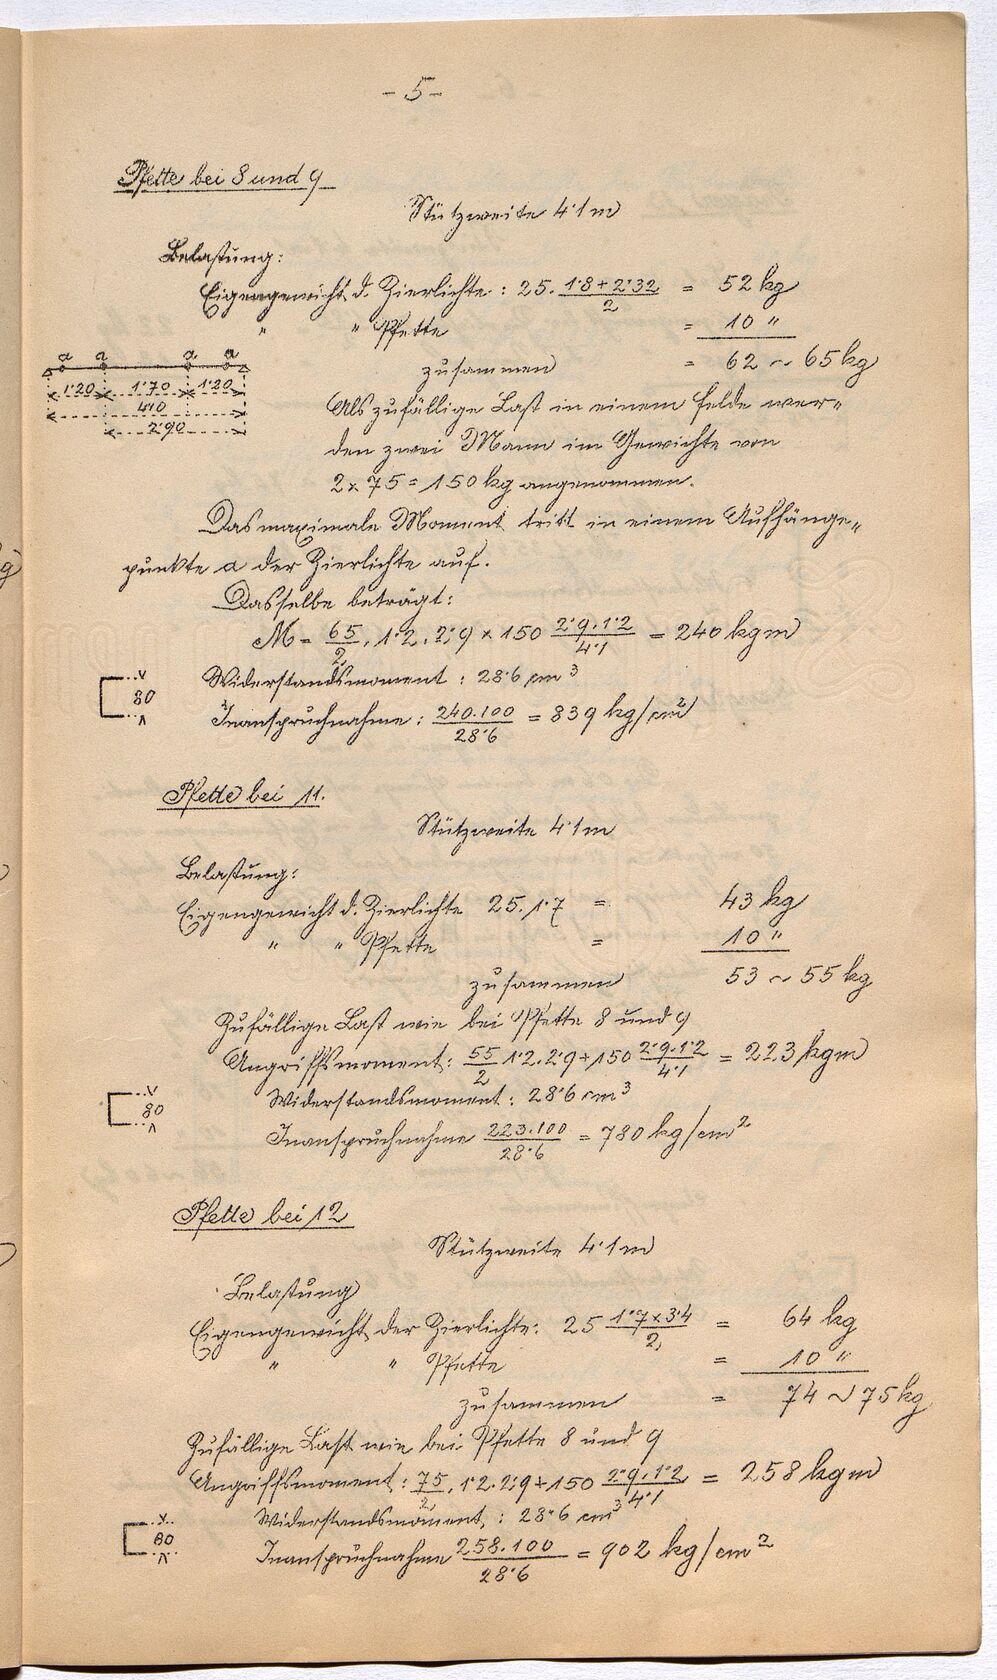 - 5 -
Pfette bei 8 und 9
Stützweite 4·1 m
Belastung:
Eigengewicht d. Zierlichte: 25 . (1·8 + 2·32)/2 = 52 kg
" " Pfette = 10 "
zusammen = 62 ~ 65 kg
a a a a
1·20 1·70 1·20
4·10
2·90
Als zufällige Last in einem Felde wer-
den zwei Mann im Gewichte von
2 × 75 = 150 kg angenommen.
Das maximale Moment tritt in einem Aufhänge-
punkte a der Zierlichte auf.
Dasselbe beträgt:
M = 65/2 . 1·2 . 2·9 × 150 (2·9 . 1·2)/4·1 = 240 kgm
Widerstandsmoment : 28·6 cm³
80
Inanspruchnahme : (240 . 100)/28·6 = 839 kg/cm²
Pfette bei 11.
Stützweite 4·1 m
Belastung:
Eigengewicht d. Zierlichte 25 . 1·7 = 43 kg
" " Pfette = 10 "
zusammen 53 ~ 55 kg
Zufällige Last wie bei Pfette 8 und 9
Angriffsmoment : 55/2 1·2 . 2·9 + 150 (2·9 . 1·2)/4·1 = 223 kgm
Widerstandsmoment : 28·6 cm³
80
Inanspruchnahme (223 . 100)/28·6 = 780 kg/cm²
Pfette bei 12
Stützweite 4·1 m
Belastung
Eigengewicht der Zierlichte: 25 (1·7 × 3·4)/2 = 64 kg
" " Pfette = 10 "
zusammen = 74 ~ 75 kg
Zufällige Last wie bei Pfette 8 und 9
Angriffsmoment : 75/2 . 1·2 . 2·9 + 150 (2·9 . 1·2)/4·1 = 258 kgm
Widerstandsmoment : 28·6 cm³
80
Inanspruchnahme (258 . 100)/28·6 = 902 kg/cm²